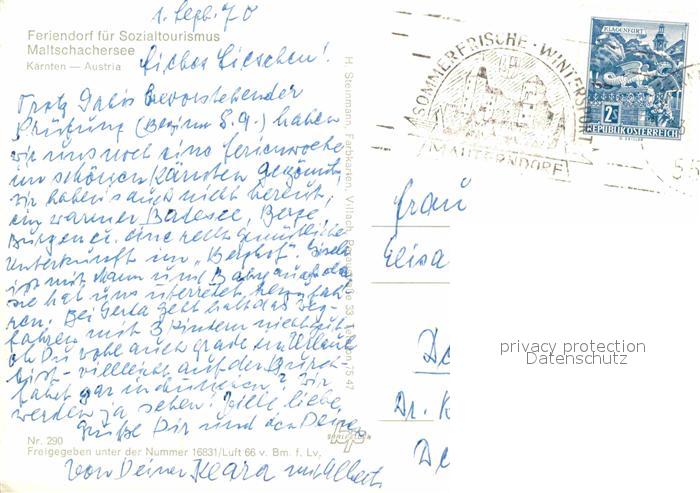 1. Sept. 70
Feriendorf für Sozialtourismus
Maltschachersee
Kärnten — Austria
Liebes Lieschen!
Trotz Gabis bevorstehender
Prüfung (Beginn 5.9.) haben
wir uns noch eine Ferienwoche
im schönen Kärnten gegönnt,
wir haben's auch nicht bereut,
ein warmer Badesee, Berge
Burgen u. eine recht gemütliche
Unterkunft im „Berghof". Gisela
ist mit Mann und Baby auch da
sie hat uns überredet herzufah-
ren. Bei Gerta geht halt das Weg-
fahren mit 3 Kindern nicht gut
ob Du wohl auch grade im Urlaub
bist - vielleicht auf der Durch-
fahrt gar in München? Wir
werden ja sehen! Viele, liebe
Grüße Dir und den Deinen
Von Deiner Klara mit Albert
Nr. 290
Freigegeben unter der Nummer 16831/Luft 66 v. Bm. f. Lv,
H. Steinmann, Farbkarten, Villach, 33, Telefon 75 47
SOMMERFRISCHE · WINTERSPORT
MAUTERNDORF
KLAGENFURT
2 S
REPUBLIK ÖSTERREICH
Frau
Elisa
Dr. K
privacy protection
Datenschutz